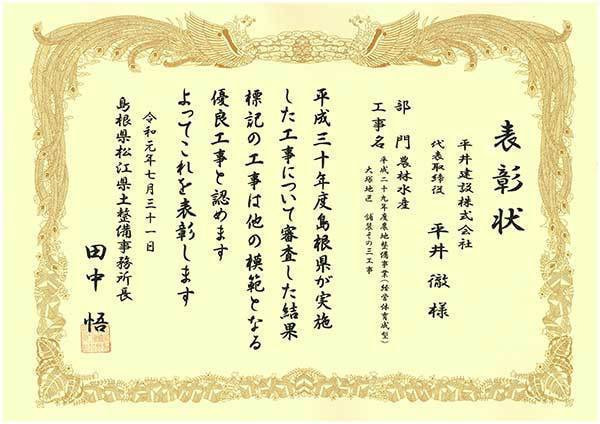 表彰状
平井建設株式会社
代表取締役 平井 徹 様
部門 農林水産
工事名 平成二十九年度農地整備事業(経営体育成型)
大塚地区 舗装その三工事
平成三十年度島根県が実施
した工事について審査した結果
標記の工事は他の模範となる
優良工事と認めます
よってこれを表彰します
令和元年七月三十一日
島根県松江県土整備事務所長
田中 悟